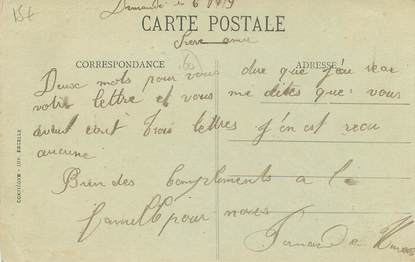 15t
Demandé le 6 1919
CARTE POSTALE
Chere amie
CORRESPONDANCE
ADRESSE
Deux mots pour vous dire que j'ai recu
votre lettre et vous me dites que vous
avait ecrit trois lettres j'en est recu
aucune
Bien des compliments a la
famille pour nous
Fernande
CORNICHON - IMP. BREZELLE